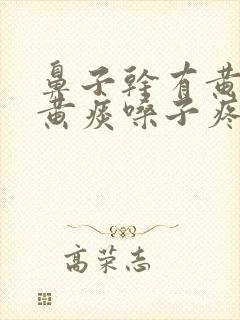 鼻子幹有黄
黄痰嗓子疼
高荣志